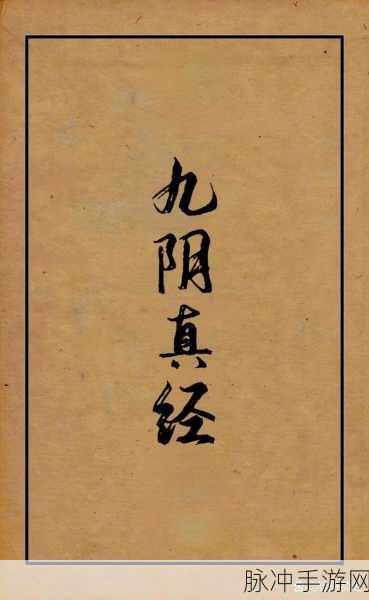 九阴真经
脉冲手游网